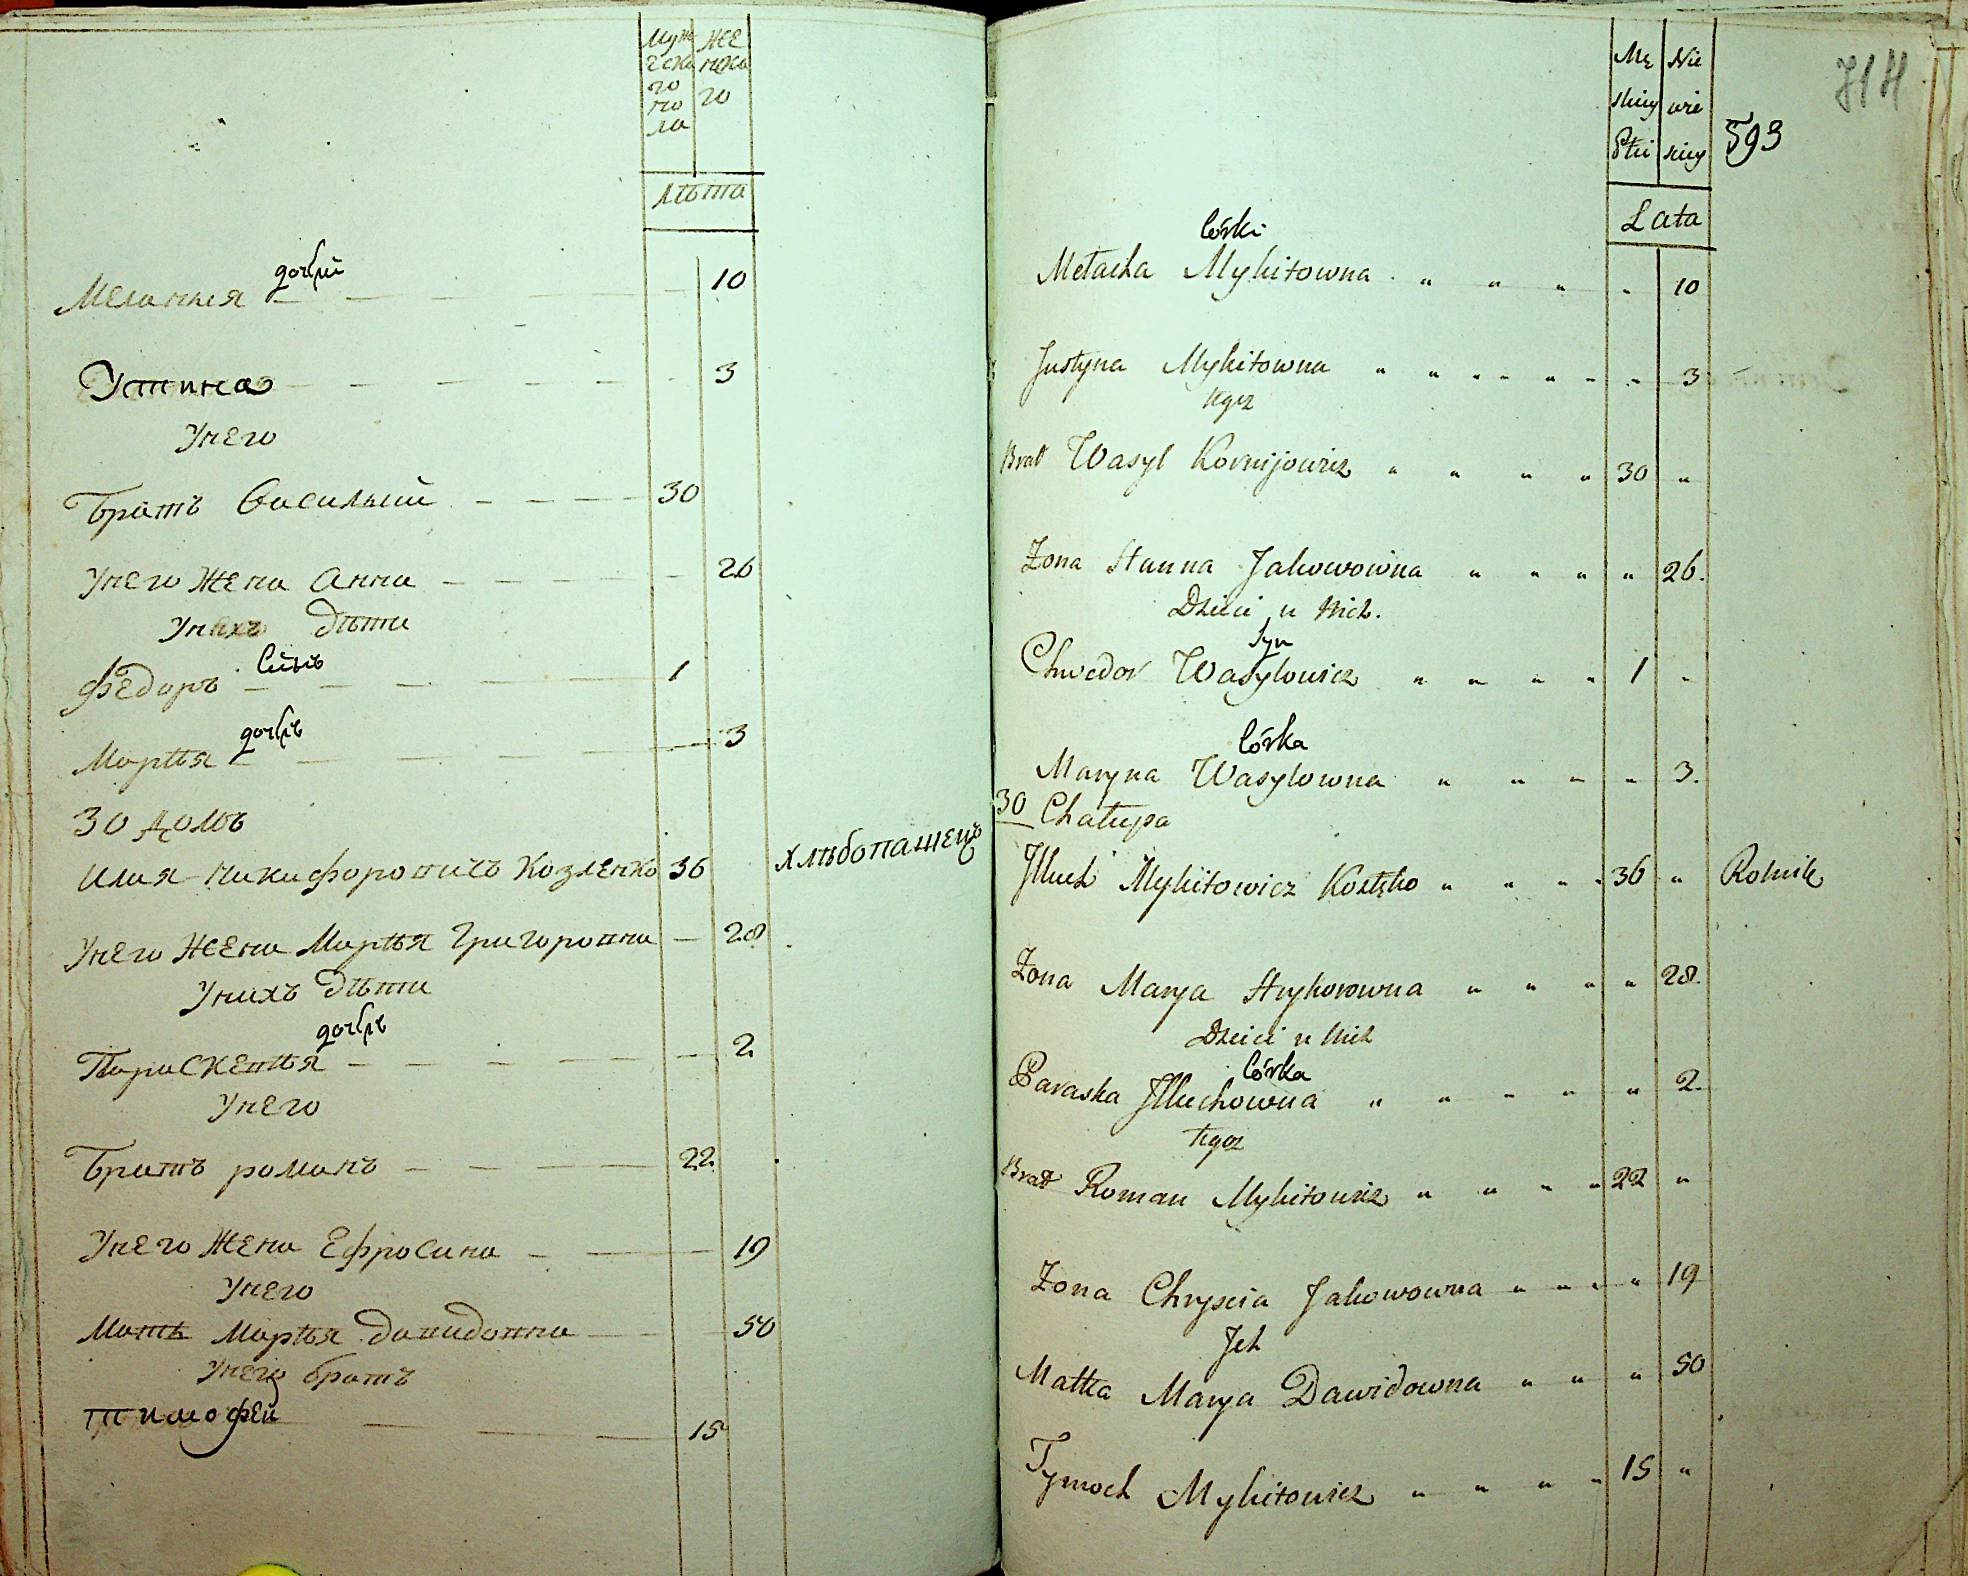 Муж ЖЕ
Еска нска
го го
по
ла
лѣта
дочери
Меланья 10
Устина 3
Унего
братъ василий 30
Унего Жена Анна 26
Унихъ дѣти
Сынъ
Федоръ 1
дочерь
Марья 3
30 домъ
Илия Никифоровичъ Козленко 36 хлѣбопашецъ
Унего Жена Марья Григоровна 28
Унихъ дѣти
дочерь
Парискевия 2
Унего
братъ романъ 22
Унего Жена Ефросина 19
Унего
Мать Марья давидовна 50
Унего братъ
тимофей 15
714
Mę Nie
skiey wie
Płci skiey
593
Lata
Córki
Mełacha Mykitowna " " " " 10
Justyna Mykitowna " " " " " " " 3
tegoż
Brat Wasyl Kornijowicz " " " " 30 "
Żona Hanna Jakowowna " " " " 26.
Dzieci u Nich.
Syn
Chwedor Wasylowicz " " " " 1 "
Córka
Maryna Wasylowna " " " " 3.
30 Chałupa
Illuch Mykitowicz Kozłęko " " " " 36 " Rolnik
Żona Marya Hryhorowna " " " " 28.
Dzieci u Nich
Córka
Paraska Illuchowna " " " " " 2.
tegoż
Brat Roman Mykitowicz " " " " 22 "
Żona Chryscia Jakowowna " " " " 19
Jch
Matka Marya Dawidowna " " " 50
Tymoch Mykitowicz " " " " 15 "